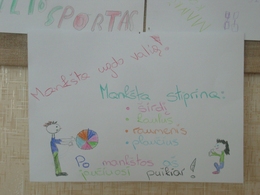 SPORTA
Mankšta ugdo valią!
Mankšta stiprina:
• širdį
• kaulus
• raumenis
• plaučius
Po mankštos aš
jaučiuosi puikiai!